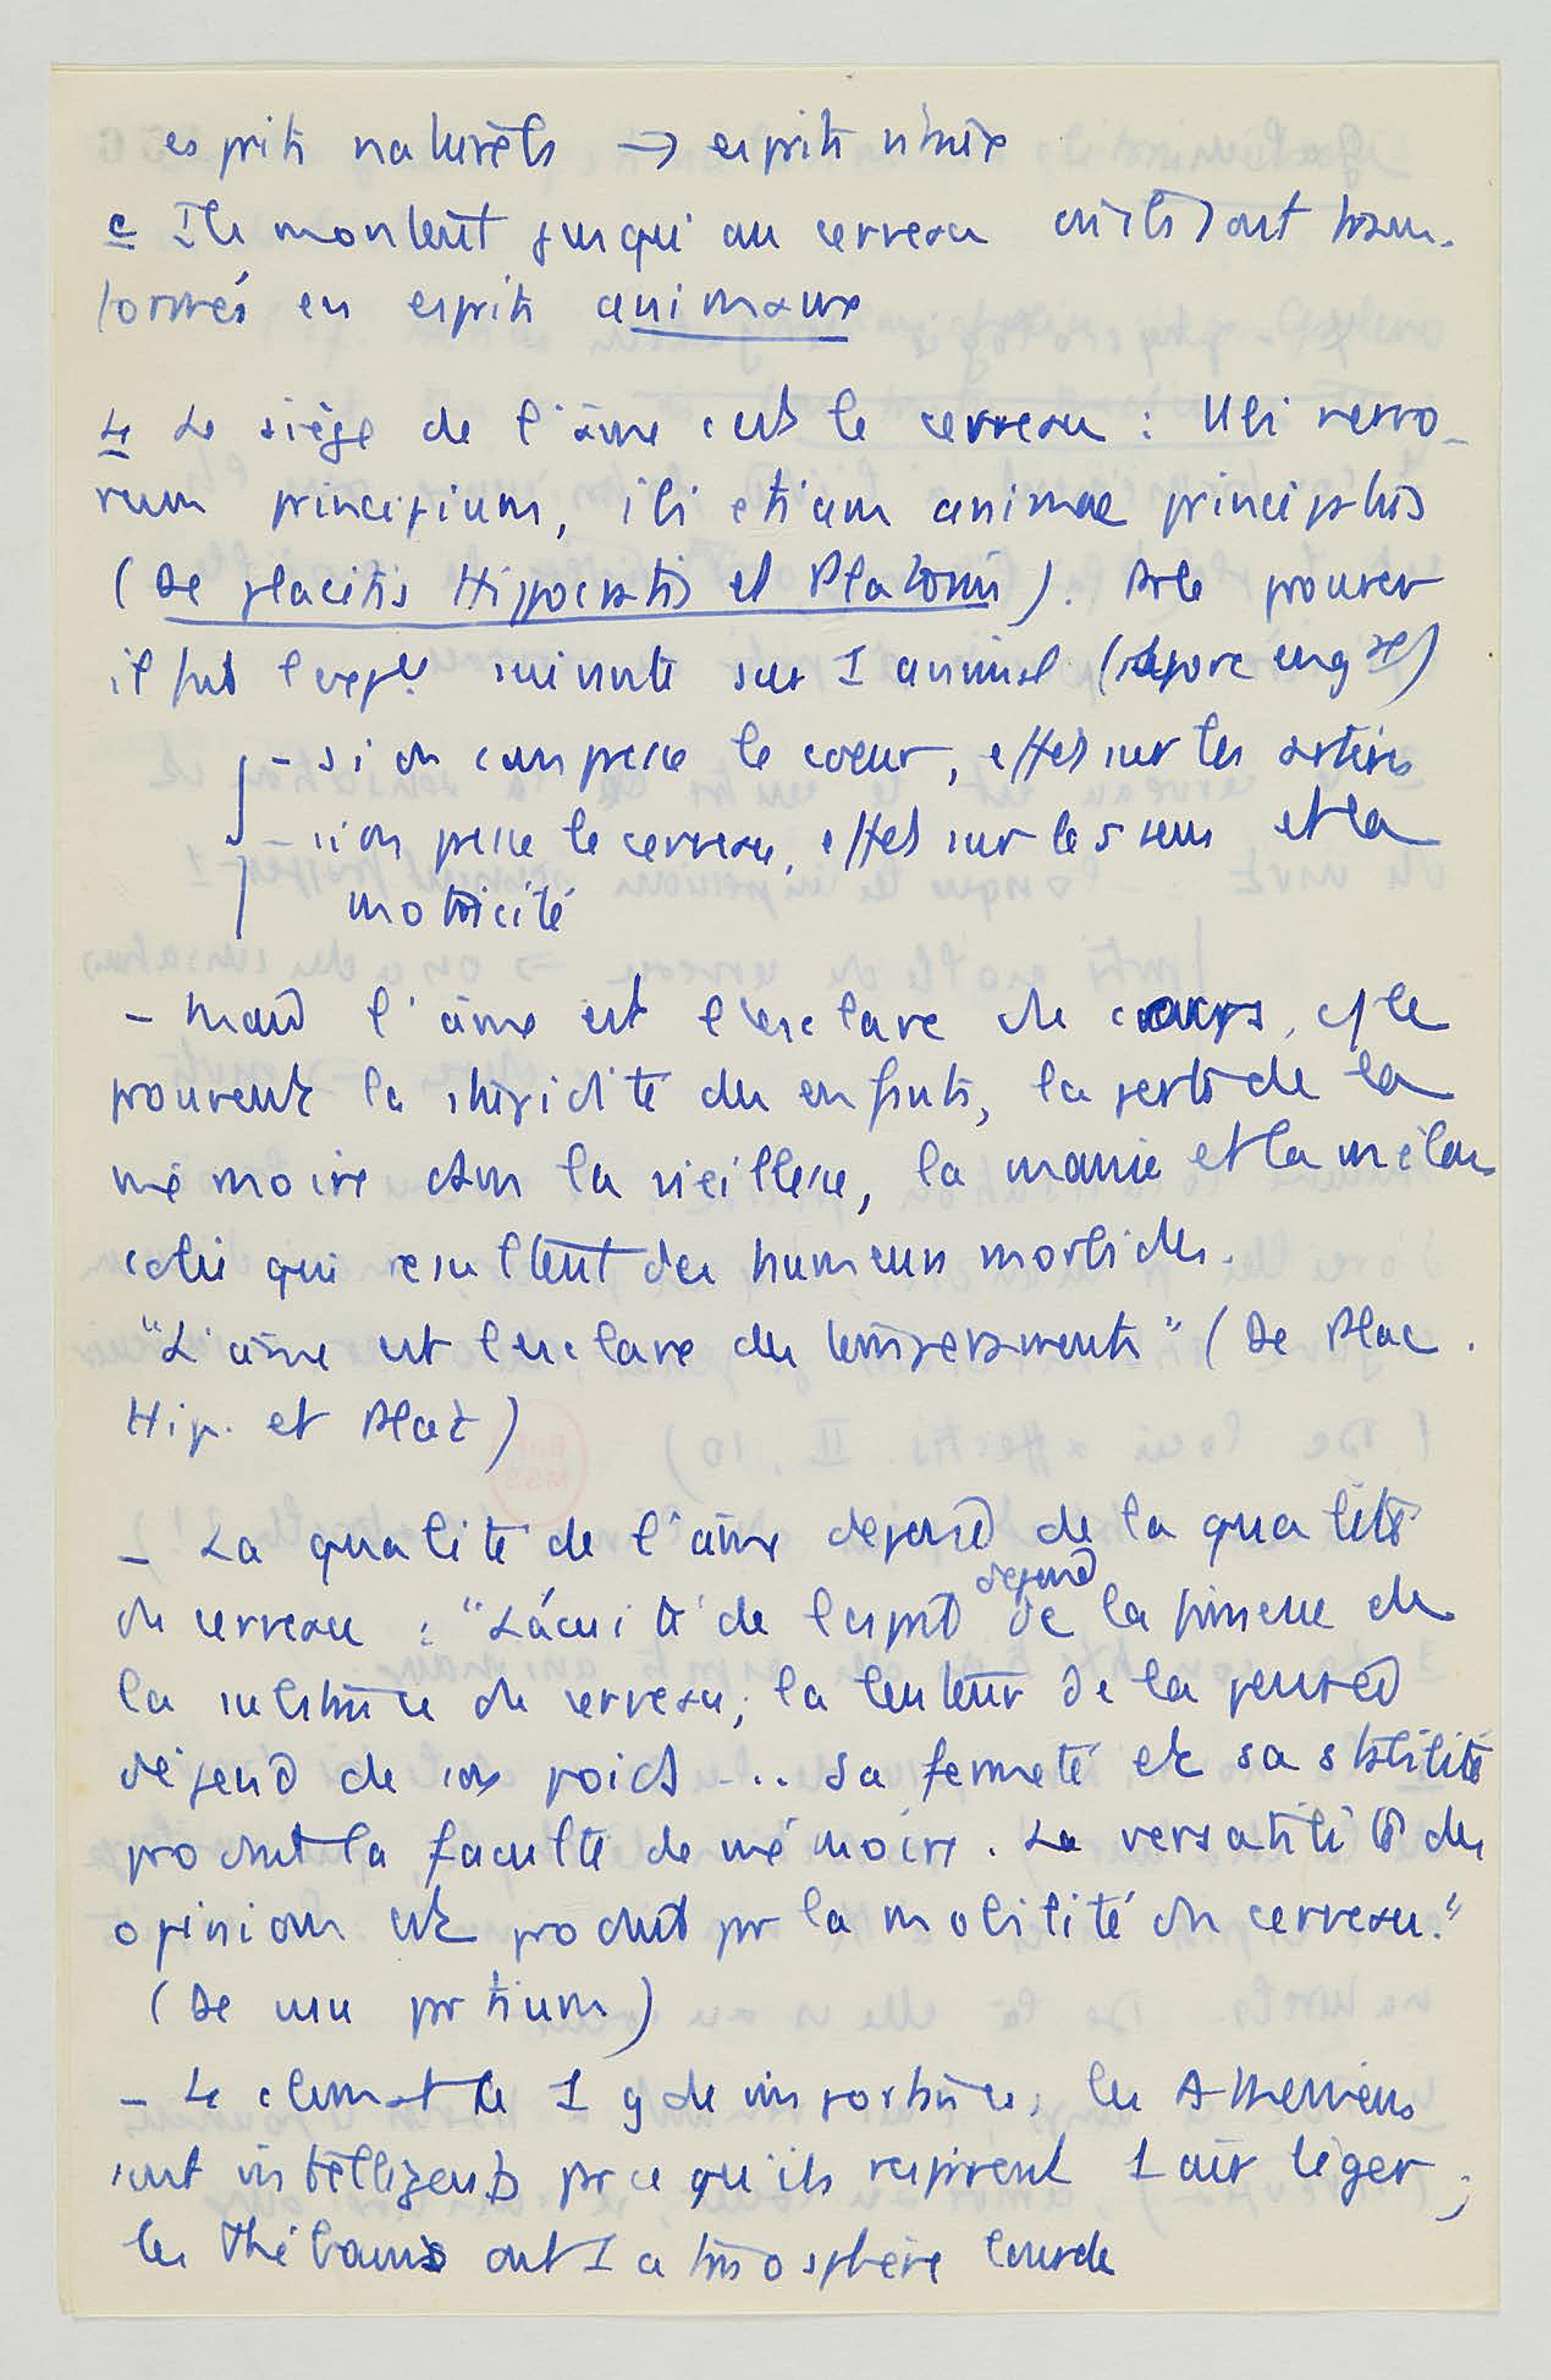 esprits naturels → esprits vitaux
c Ils montent jusqu'au cerveau où ils sont trans-
formés en esprits animaux
4 Le siège de l'âme c'est le cerveau : Ubi nervo-
rum principium, ibi etiam animae principatus
(De placitis Hippocratis et Platonis). Pr le prouver
il fait l'expce suivante sur 1 animal
- si on compresse le coeur, effet sur les artères
- si on presse le cerveau, effet sur les sens et la
motricité
- Mais l'âme est l'esclave du corps, c/ le
prouvent la stupidité des enfants, la perte de la
mémoire dans la vieillesse, la manie et la mélan-
colie qui resultent des humeurs morbides.
"L'âme est l'esclave des tempéraments" (De Plac.
Hip. et Plat)
- La qualité de l'âme depend de la qualité
du cerveau : "L'acuité de l'esprit depend de la finesse de
la substance du cerveau; la lenteur de la pensée
dépend de son poids ... Sa fermeté et sa stabilité
produit la faculté de mémoire. La versatilité des
opinions est produit pr la mobilité du cerveau."
(De usu partium)
- Le climat a 1 gde importance; les Atheniens
sont intelligents parce qu'ils respirent 1 air léger;
les Thébains ont 1 atmosphère lourde